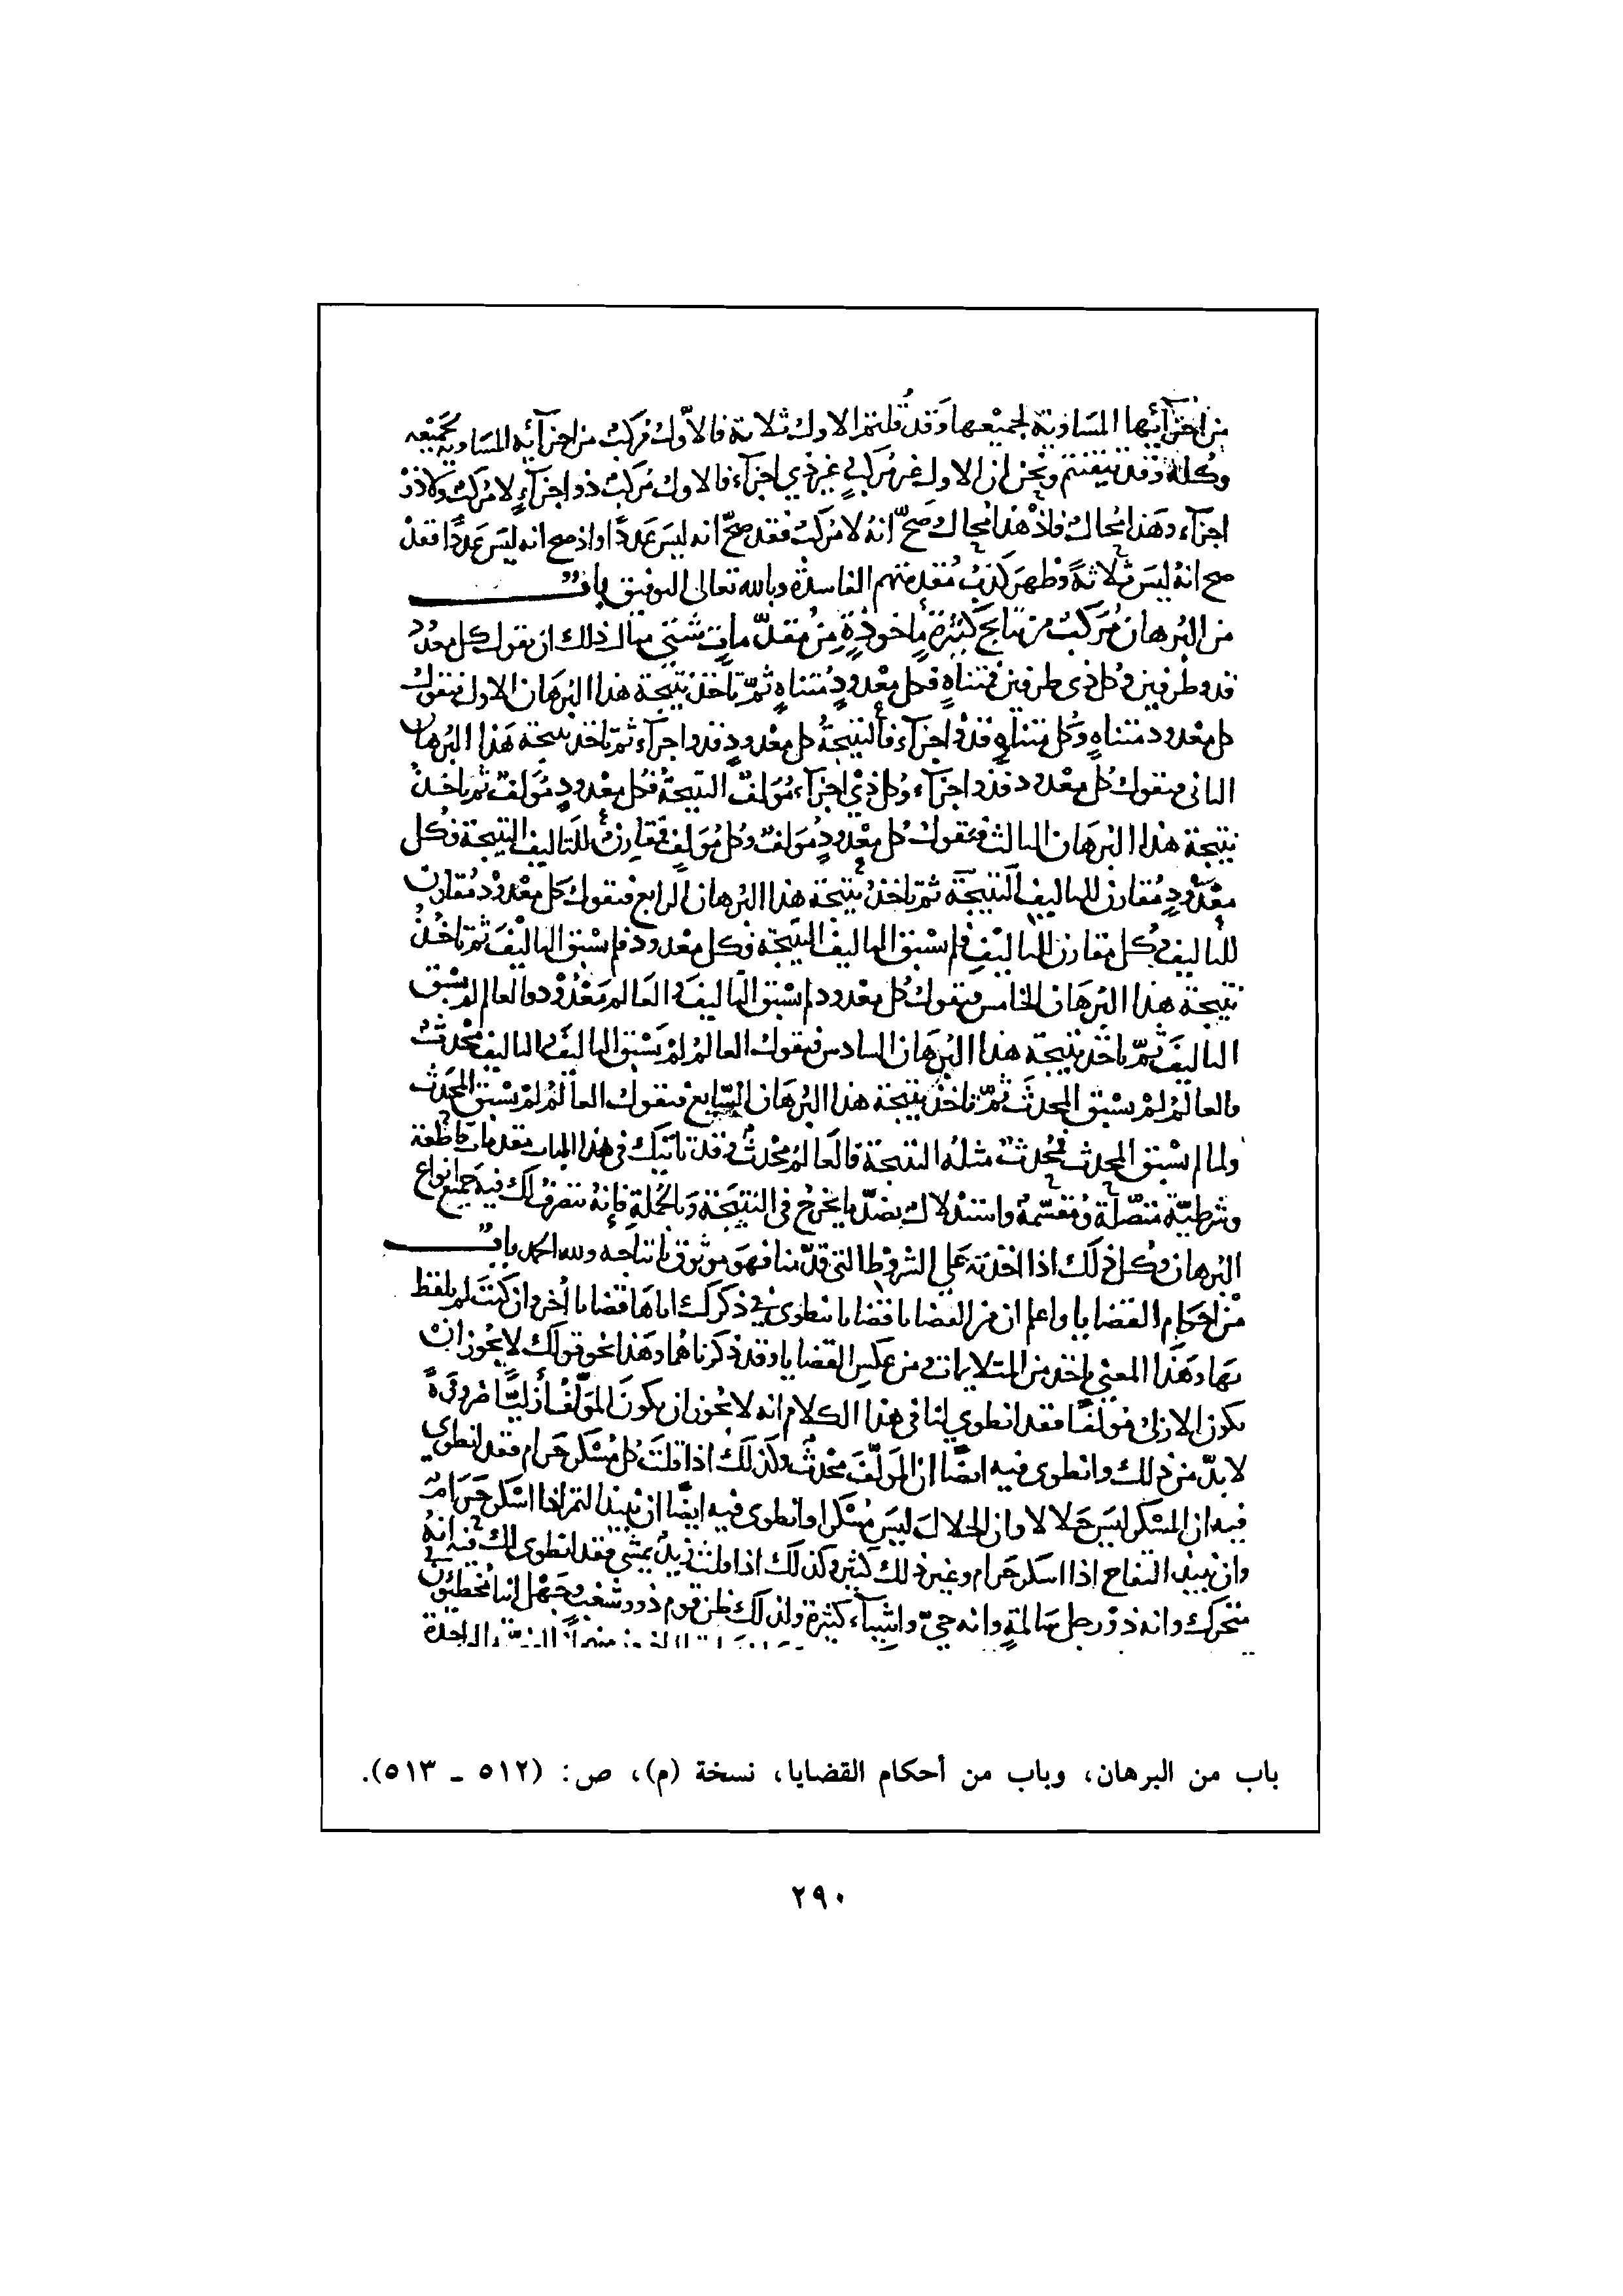 من اجزآئها المسَاوية لجميْعها وَقدْ قُلتم الاول ثلاثة فالاوّل مُركبٌ من اجزآئه المسَاوية لجَميْعه
وكُله وَقد تيقنتم ونحن ان الاول غير مُركبٍ غير ذي اجزآء فالاول مُركبٌ ذو اجزآءٍ لا مُركبٌ ولا ذوْ
اجزآء وهَذا مُحال فاذْ هَذا مُحال صَحَّ انهُ لا مُركبٌ فقد صحّ انه ليسَ عَددًا واذ صح انه ليسَ عَددًا فقدْ
صح انهُ ليسَ ثلاثةً وظهرَ كذبُ مُقدمتهم الفاسدة وبالله تعالى التوفيق بابٌ
من البُرهان مُركبٌ من نتايج كَثيْرةٍ مأخوذةٍ مِنْ مقدّماتٍ شتى مثال ذلك ان تقول كل معدُود
فذو طرفين وكل ذي طرفين فمتناهٍ فكل معْدودٍ مُتناهٍ ثمّ تأخذ نتيجة هذا البُرهَان الاول فتقول
كل معدود متناهٍ وكُل متناهٍ فذوْ اجزآء فالنتيجةُ كل معْدودٍ فذو اجزآء ثم تاخذ نتيجة هَذا البُرهان
الثاني فتقول كُل معْدود فذو اجزآء وكل ذيْ اجزآء مُؤلفٌ النتيجةُ فكل معْدودٍ مُؤلفٌ ثم تاخذُ
نتيجة هذا البُرهَان الثالث فتقول كُل معْدودٍ مُؤلفٌ وكل مُؤلفٍ فمقارنٌ للتاليف النتيجة فكل
معْدُودٍ مُقارن للتاليف النتيجَة ثم تاخذُ نتيجة هذا البُرهان الرابع فتقول كل معْدوْد مُقارن
للتاليف وكُل مقارن للتاليْفِ فلم يسْبق التاليفَ النتيجة فكل معْدود فلم يسْبق التاليْفَ ثم تاخُذ
نتيجة هذا البُرهَان الخامس فتقول كُل معْدود لم يسْبق التاليفَ والعَالم مَعْدُوْد فالعالم لم يسْبق
التاليفَ ثمّ تاخُذ نتيجة هذا البُرهَان السادس فتقول العالمُ لمْ يَسْبق التاليفَ والتاليف مُحْدثٌ
فالعالمُ لمْ يسْبق المحدثَ ثمّ تاخذُ نتيجة هذا البُرهَان السّابع فتقول العالمُ لم يسْبق المحْدَث
وما لم يسْبق المحدث فمُحْدثٌ مثلهُ النتيجة فالعَالمُ مُحْدثٌ وقد تاتيك في هذا الباب مقدمات قاطعة
وشرطيّة متصّلة ومُقسّمةٌ واستدلال بضدّ ما يخرجُ في النتيْجَة وَبالجُملةِ فإنهُ تتصرفُ لك فيه جميع انواع
البُرهان وكُل ذلَك اذا اخَذتهُ عَلى الشروْط التي قدّمنا فهوَ موثوق بانتاجه ولله الحمد بابٌ
مِنْ احكام القضايا واعلم ان من القضايا قضايا تنطوي في ذكرك اياهَا قضايا اُخر وان كنتَ لم تلفظ
بها وهَذا المعنى ياخذ من المتلايمات ومن عكس القضايا وقد ذكرناهُما وهَذا نحو قولك لا يجُوز انْ
يكون الازلى مؤلفًا فقد انطوى لنا في هذا الكلام انه لا يجُوز ان يكونَ المؤلفُ أزليًّا ضرورةً
لا بدّ من ذلك وانطوى فيه ايضًا ان المؤلّفَ مُحْدثٌ وكذلكَ اذا قلتَ كُل مُسْكر حَرام فقد انطوى
فيه ان المسْكر ليسَ حَلالا وان الحلالَ ليسَ مُسْكرا وانطوى فيه ايضًا ان نبيذ التمر اذا اسْكر حَرَامٌ
وان نبيذ التفاح اذا اسكر حَرام وغير ذلك كثير وكذلك اذا قلت زيدٌ يمشي فقد انطوى لك فيه انهُ
متحرك وانه ذوْ رجل سَالمةٍ وانه حيّ واشياء كثيرة ولذلك ظن قوم ذوو شغبٍ وجَهْلٍ اننا مُخطئون في
باب من البرهان، وباب من أحكام القضايا، نسخة (م)، ص: (٥١٢ ـ ٥١٣).
٢٩٠